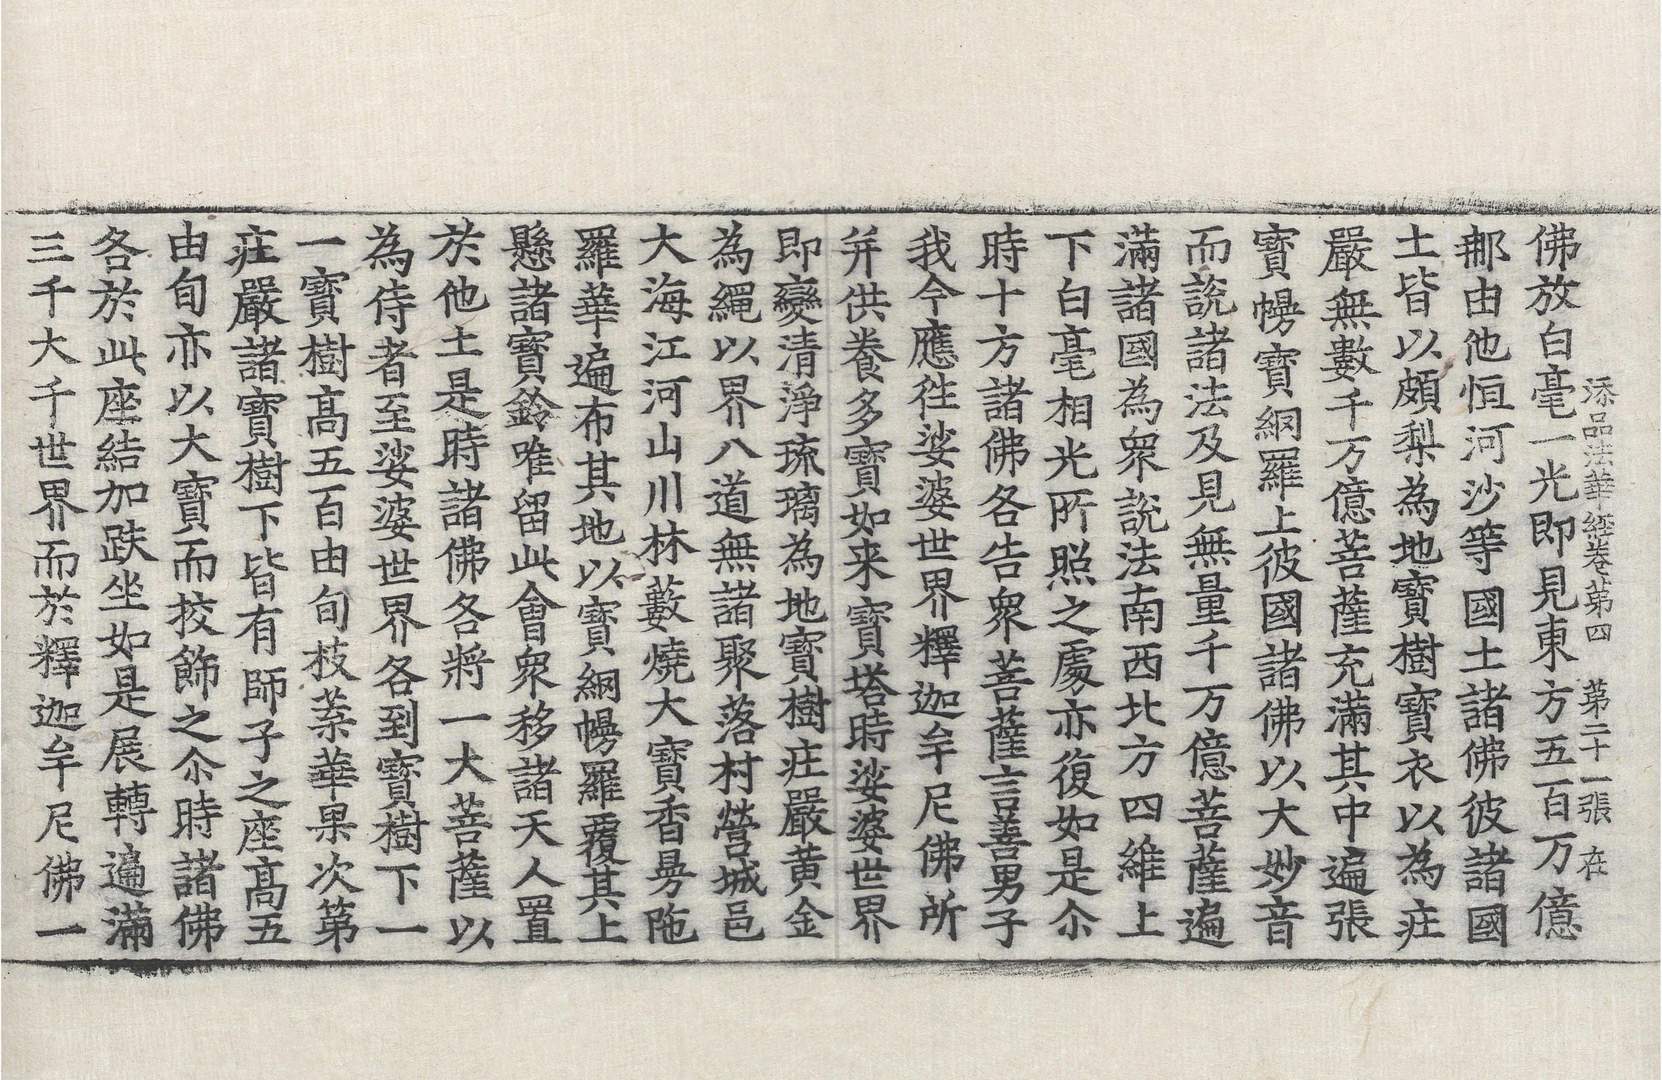 添品法華經卷第四　第二十一張　在
佛放白毫一光即見東方五百万億
那由他恒河沙等國土諸佛彼諸國
土皆以頗梨為地寶樹寶衣以為庄
嚴無數千万億菩薩充滿其中遍張
寶幔寶網羅上彼國諸佛以大妙音
而說諸法及見無量千万億菩薩遍
滿諸國為衆說法南西北方四維上
下白毫相光所照之處亦復如是尒
時十方諸佛各告衆菩薩言善男子
我今應往娑婆世界釋迦牟尼佛所
并供養多寶如来寶塔時娑婆世界
即變清淨琉璃為地寶樹庄嚴黄金
為繩以界八道無諸聚落村營城邑
大海江河山川林藪燒大寶香曼陁
羅華遍布其地以寶網幔羅覆其上
懸諸寶鈴唯留此會衆移諸天人置
於他土是時諸佛各將一大菩薩以
為侍者至娑婆世界各到寶樹下一
一寶樹高五百由旬枝葉華果次第
庄嚴諸寶樹下皆有師子之座高五
由旬亦以大寶而挍飾之尒時諸佛
各於此座結加趺坐如是展轉遍滿
三千大千世界而於釋迦牟尼佛一